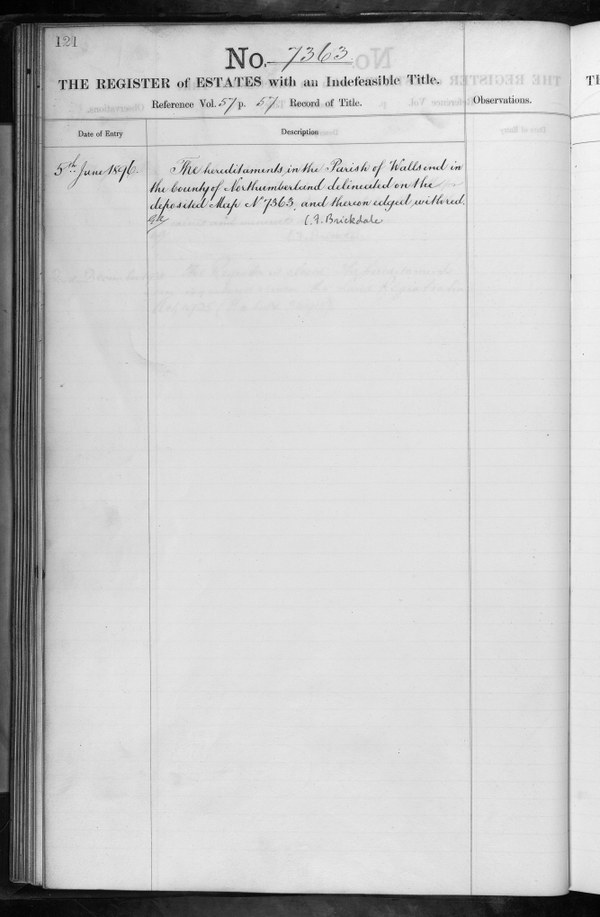 121
No. 7363
THE REGISTER of ESTATES with an Indefeasible Title.
Reference Vol. 57 p. 57. Record of Title.
Observations.
Date of Entry
Description
5th June 1896.
The hereditaments in the Parish of Wallsend in
the County of Northumberland delineated on the
deposited Map No 7363. and thereon edged with red.
C.F. Brickdale